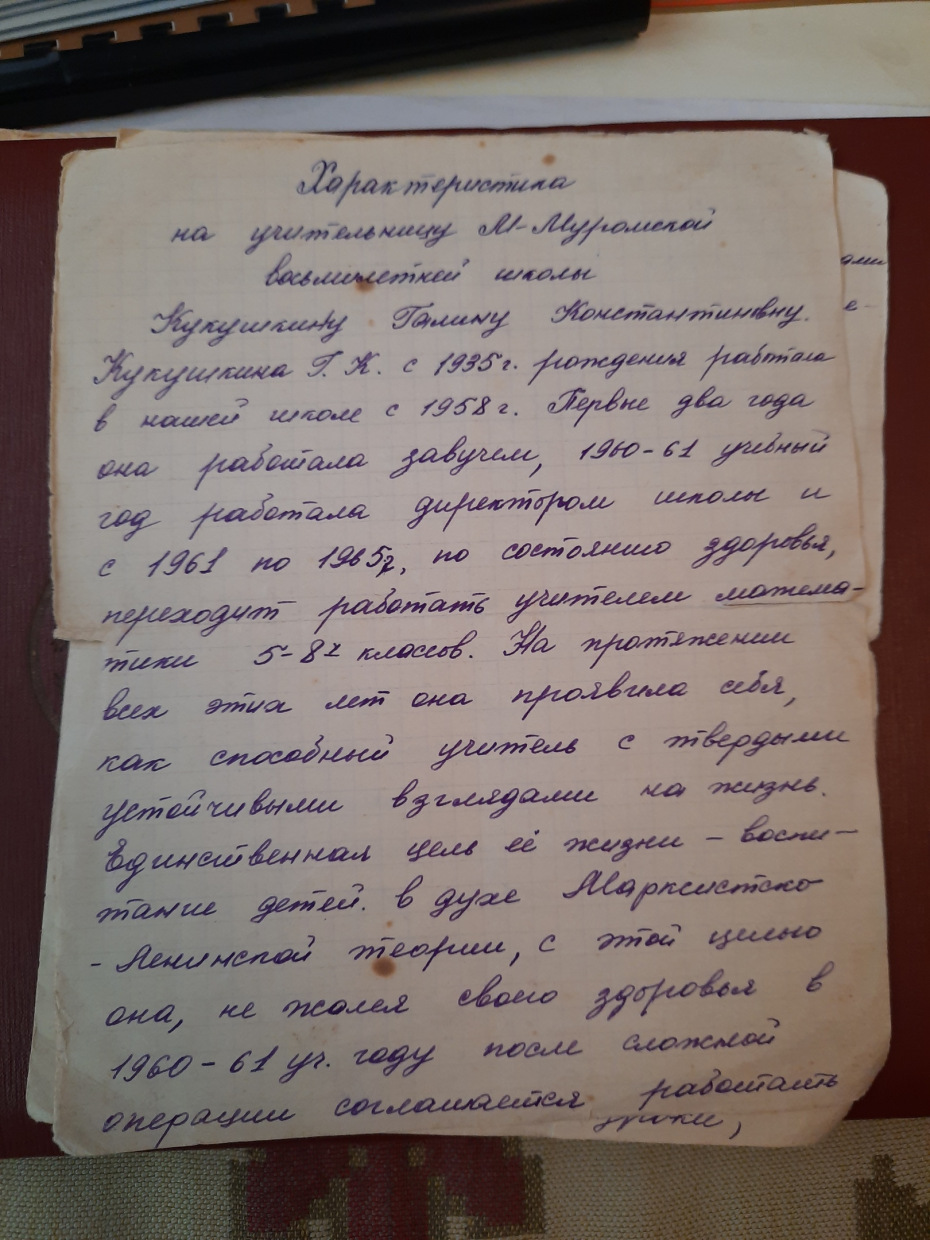 Характеристика
на учительницу М-Муромской
восьмилетней школы
Кукушкину Галину Константиновну.
Кукушкина Г. К. с 1935 г. рождения работала
в нашей школе с 1958 г. Первые два года
она работала завучем, 1960-61 учебный
год работала директором школы и
с 1961 по 1965 г, по состоянию здоровья,
переходит работать учителем матема-
тики 5-8х классов. На протяжении
всех этих лет она проявила себя,
как способный учитель с твердыми
устойчивыми взглядами на жизнь.
Единственная цель её жизни - воспи-
тание детей. в духе Марксистско
- Ленинской теории, с этой целью
она, не жалея своего здоровья в
1960-61 уч. году после сложной
операции соглашается работать
уроки,
ами
е-